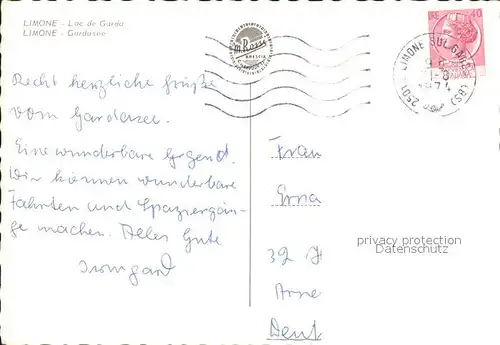 LIMONE - Lac de Garda
LIMONE - Gardasee
Recht herzliche Grüße
vom Gardasee.
Eine wunderbare Gegend.
Wir können wunderbare
Fahrten und Spaziergän-
ge machen. Alles Gute
Irmgard
BRESCIA
40
LIMONE SUL GARDA (BS)
Frau
Erna
privacy protection
Datenschutz
32 H
Arne
Deut